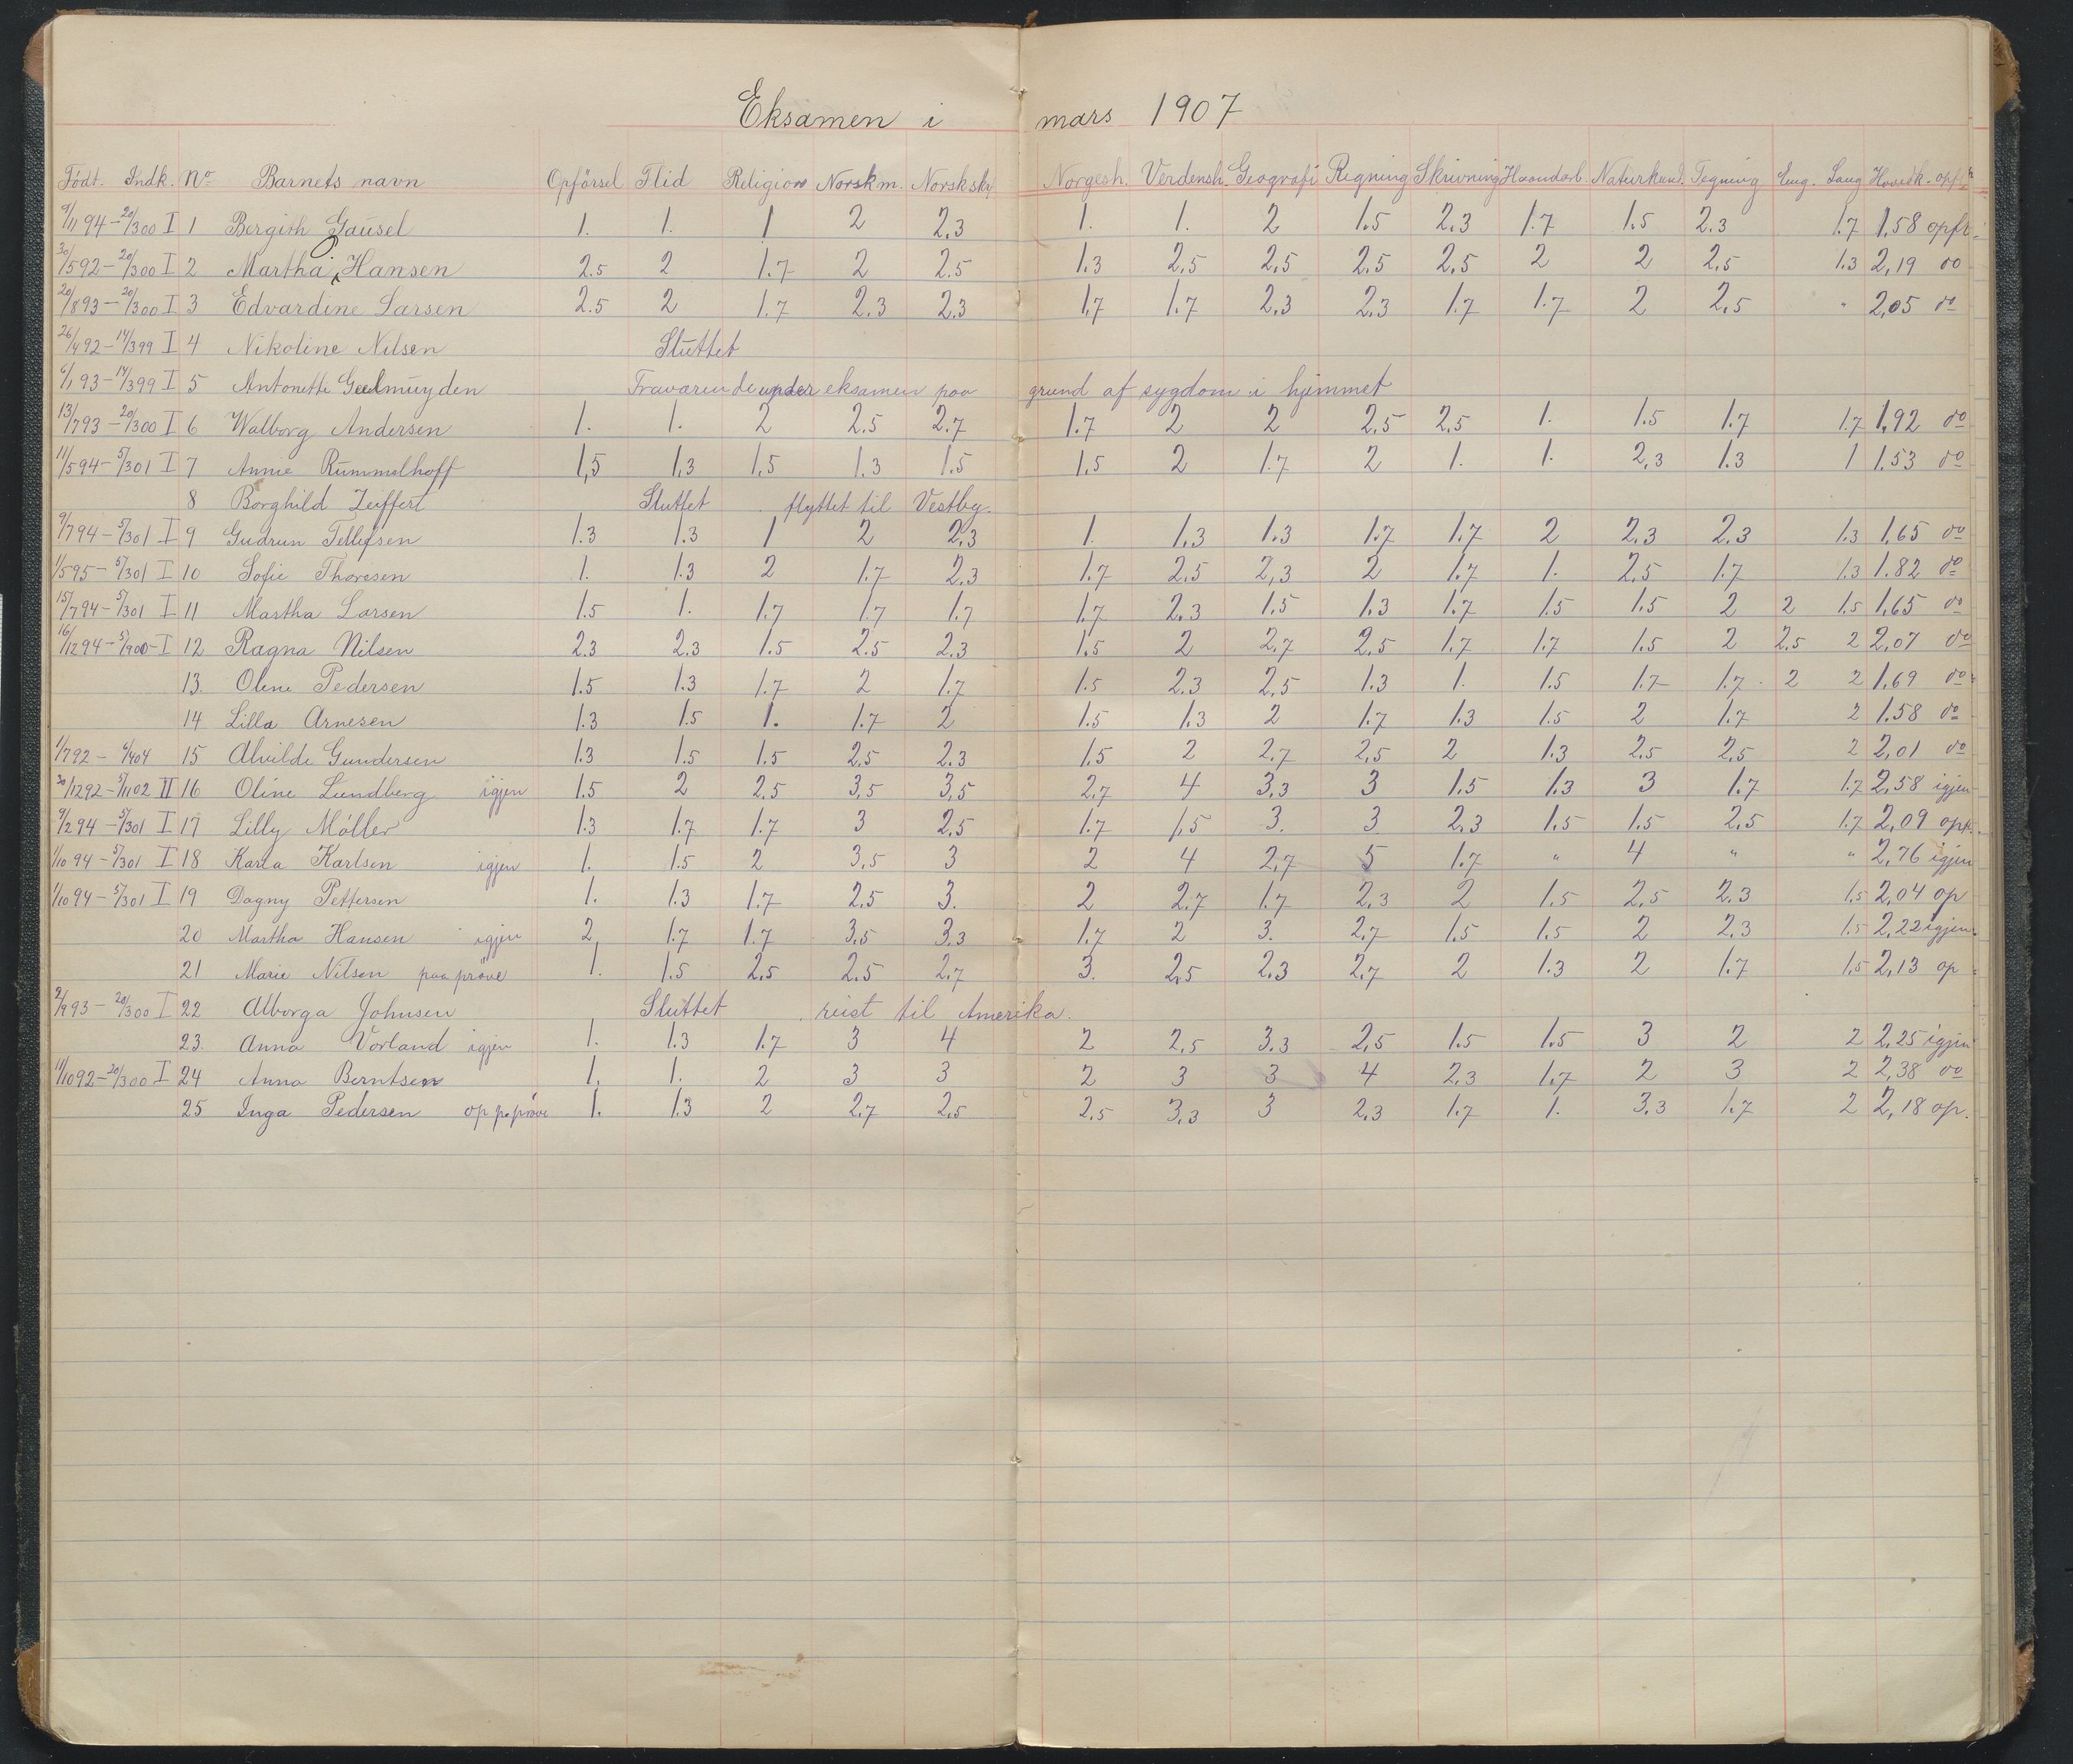 Eksamen i mars 1907
Födt. Indk. No Barnets navn Opförsel Flid Religion Norsk m. Norsk skr Norgesh. Verdensh. Geografi Regning Skrivning Haandarb. Naturkund. Tegning Eng. Sang Hovedk. opf.
9/11 94 - 20/3 00 I 1 Bergith Gausel 1. 1. 1 2 2.3 1. 1. 2 1.5 2.3 1.7 1.5 2.3 1.7 1,58 opfl.
30/5 92 - 20/3 00 I 2 Martha O Hansen 2.5 2 1.7 2 2.5 1.3 2,5 2,5 2,5 2,5 2 2 2,5 1.3 2,19 do
20/8 93 - 20/3 00 I 3 Edvardine Larsen 2.5 2 1.7 2.3 2.3 1,7 1.7 2,3 2,3 1.7 1.7 2 2,5 " 2,05 do
26/4 92 - 14/3 99 I 4 Nikoline Nilsen Sluttet
6/1 93 - 14/3 99 I 5 Antonette Geelmuyden Fraværende under eksamen paa grund af sygdom i hjemmet
13/7 93 - 20/3 00 I 6 Walborg Andersen 1. 1. 2 2.5 2.7 1.7 2 2 2,5 2,5 1. 1.5 1.7 1.7 1,92 do
11/5 94 - 5/3 01 I 7 Annie Rummelhoff 1,5 1,3 1,5 1.3 1.5 1,5 2 1.7 2 1. 1. 2,3 1.3 1 1.53 do
8 Borghild Zeiffert Sluttet flyttet til Vestby.
9/7 94 - 5/3 01 I 9 Gudrun Tellefsen 1.3 1.3 1 2 2.3 1. 1.3 1.3 1.7 1.7 2 2.3 2.3 1.3 1,65 do
1/5 95 - 5/3 01 I 10 Sofie Thoresen 1. 1.3 2 1.7 2.3 1.7 2,5 2,3 2 1.7 1. 2,5 1.7 1.3 1.82 do
15/7 94 - 5/3 01 I 11 Martha Larsen 1.5 1. 1.7 1.7 1.7 1.7 2.3 1.5 1.3 1.7 1.5 1.5 2 2 1.5 1,65 do
16/12 94 - 5/9 00 - I 12 Ragna Nilsen 2.3 2.3 1.5 2.5 2.3 1.5 2 2,7 2,5 1.7 1.7 1.5 2 2.5 2 2,07 do
13. Oline Pedersen 1.5 1.3 1.7 2 1.7 1.5 2.3 2,5 1.3 1. 1.5 1.7 1.7 2 2 1,69 do
14 Lilla Arnesen 1.3 1.5 1. 1.7 2 1.5 1.3 2 1.7 1.3 1.5 2 1.7 2 1.58 do
1/7 92 - 6/4 04 15 Alvilde Gundersen 1.3 1.5 1.5 2,5 2.3 1.5 2 2.7 2,5 2 1.3 2,5 2,5 2 2,01 do
30/12 92 - 5/11 02 II 16 Oline Lundberg igjen 1.5 2 2.5 3,5 3,5 2,7 4 3,3 3 1.5 1.3 3 1.7 1.7 2,58 igjen
9/2 94 - 5/3 01 I 17 Lilly Möller 1.3 1.7 1.7 3 2.5 1.7 1,5 3. 3 2.3 1.5 1.5 2,5 1.7 2,09 opf.
1/10 94 - 5/3 01 I 18 Karla Karlsen igjen 1. 1.5 2 3,5 3 2 4 2,7 5 1.7 " 4 " " 2,76 igjen
1/10 94 - 5/3 01 I 19 Dagny Pettersen 1. 1.3 1.7 2.5 3. 2 2.7 1.7 2,3 2 1.5 2,5 2.3 1.5 2,04 op
20 Martha Hansen igjen 2, 1.7 1.7 3.5 3.3 1.7 2 3. 2.7 1.5 1.5 2 2.3 1.5 2,22 igjen.
21 Marie Nilsen paa pröve 1. 1.5 2.5 2.5 2.7 3. 2,5 2.3 2,7 2 1.3 2 1.7 1,5 2,13 op
2/9 93 - 20/3 00 I 22 Alborga Johnsen Sluttet reist til Amerika.
23. Anna Vorland igjen 1. 1.3 1.7 3 4 2 2,5 3.3 2,5 1.5 1.5 3 2 2 2,25 igjen
11/10 92 - 20/3 00 I 24 Anna Berntsen 1. 1. 2 3 3 2 3 3 4 2.3 1.7 2 3 2 2,38 do
25 Inga Pedersen op p. pröve 1. 1.3 2 2.7 2,5 2.5 3,3 3 2.3 1.7 1. 3.3 1.7 2 2,18 op.